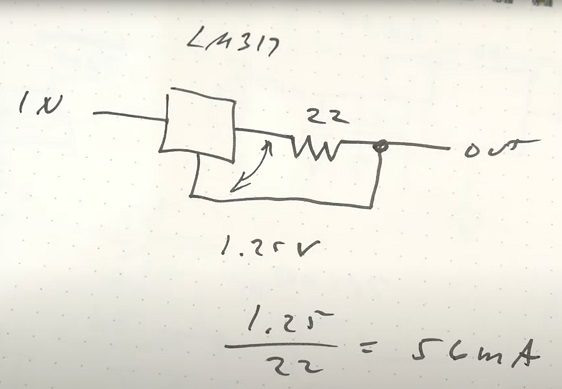 LM317
IN
22
OUT
1.25V
1.25
22
= 56mA